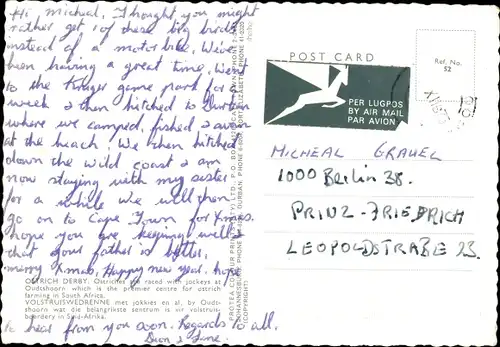 Hi micheal, Thought you might
rather get 1 of these big birds
instead of a motor bike. We've
been having a great time. Went
to the Kruger game park for a
week & then hitched to Durban
where we camped, fished & swam
at the beach. We then hitched
down the wild coast & am
now staying with my sister
for a while we will then
go on to Cape Town for Xmas.
hope you are keeping well &
that your father is better.
merry Xmas, Happy new year. hope
OSTRICH DERBY. Ostriches are raced with jockeys at
Oudtshoorn which is the premier centre for ostrich
farming in South Africa.
VOLSTRUISWEDRENNE met jokkies en al, by Oudts-
hoorn wat die belangrikste sentrum is vir volstruis-
boerdery in Suid-Afrika.
to hear from you soon. Regards to all.
PROTEA COLOUR PRINTS (PTY) LTD., P.O. BOX
JOHANNESBURG PHONE
(COPYRIGHT)
POST CARD
Ref. No.
52
PER LUGPOS
BY AIR MAIL
PAR AVION
MICHEAL GRAUEL
1000 Berlin 38.
PRINZ-FRIEDRICH
LEOPOLDSTRAßE 23.